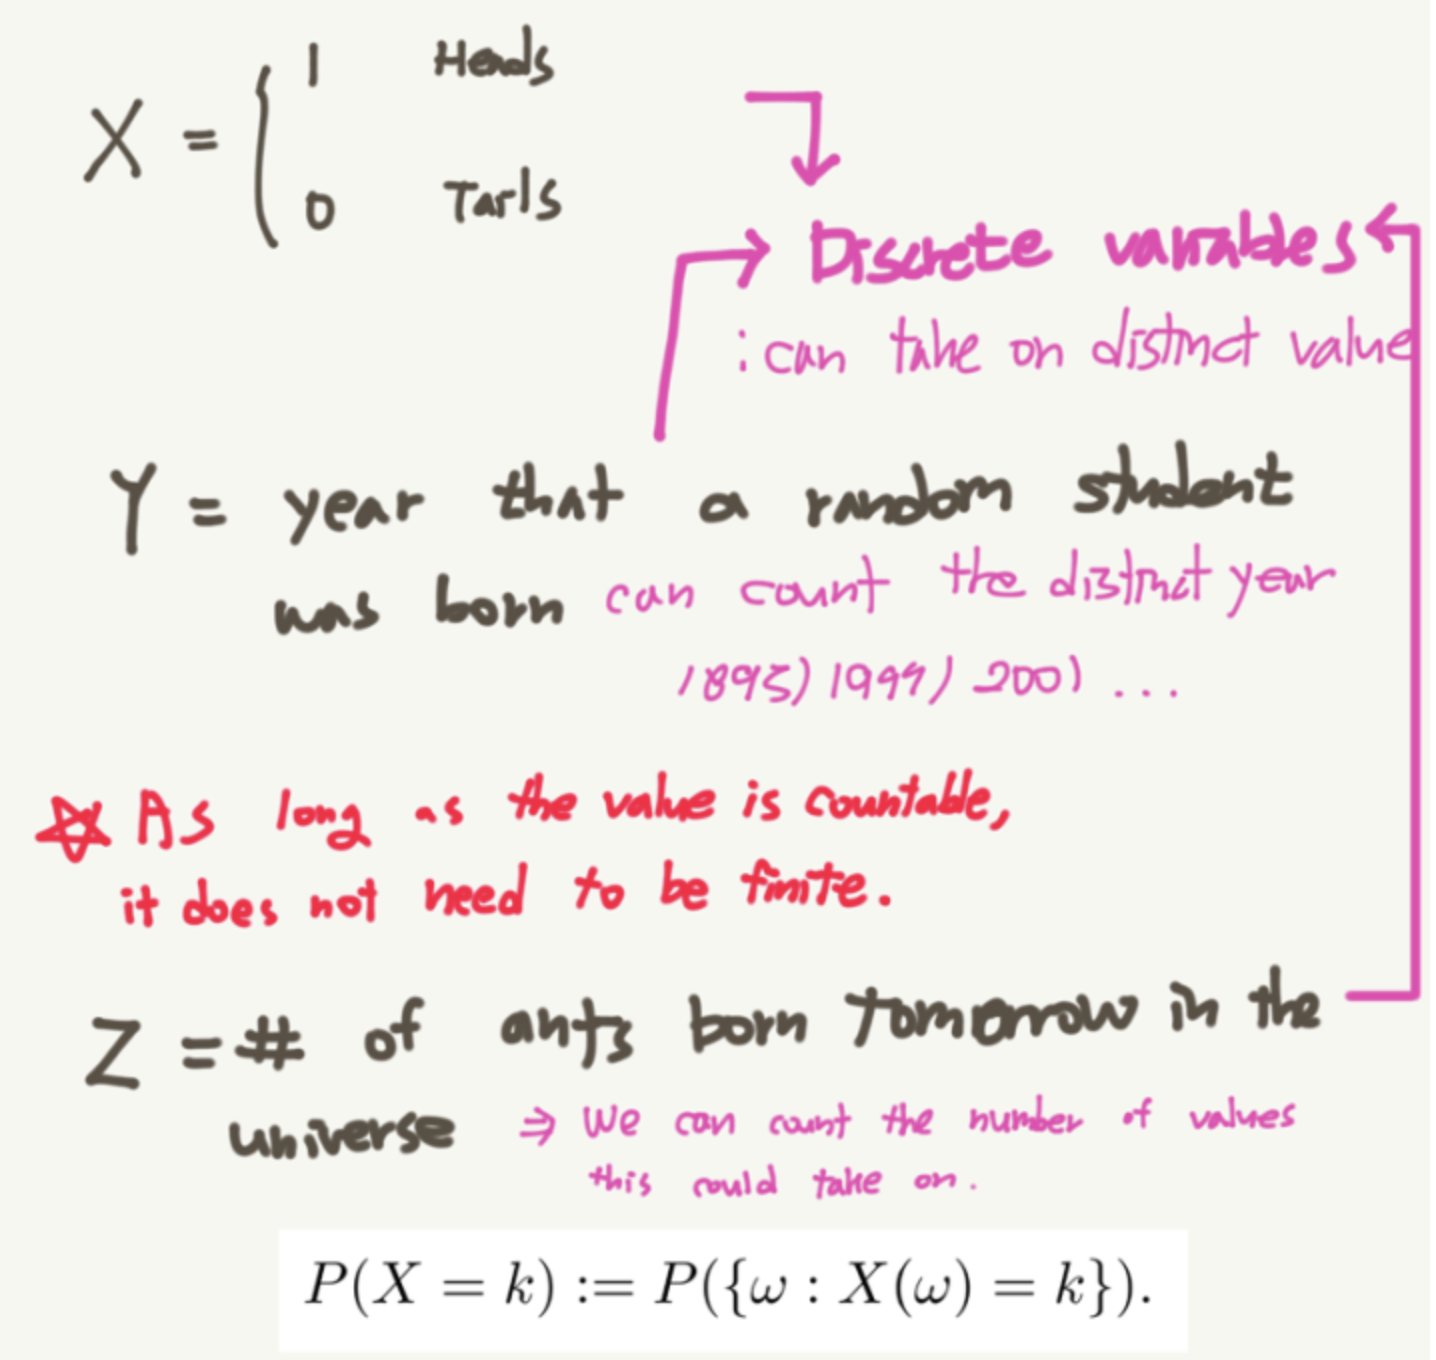 X = { 1 Heads
0 Tails
Discrete variables
: can take on distinct value
Y = year that a random student
was born can count the distinct year
1895) 1999) 2001 ...
☆ As long as the value is countable,
it does not need to be finite.
Z = # of ants born tomorrow in the
universe ⇒ We can count the number of values
this could take on.
P(X = k) := P({ω : X(ω) = k}).